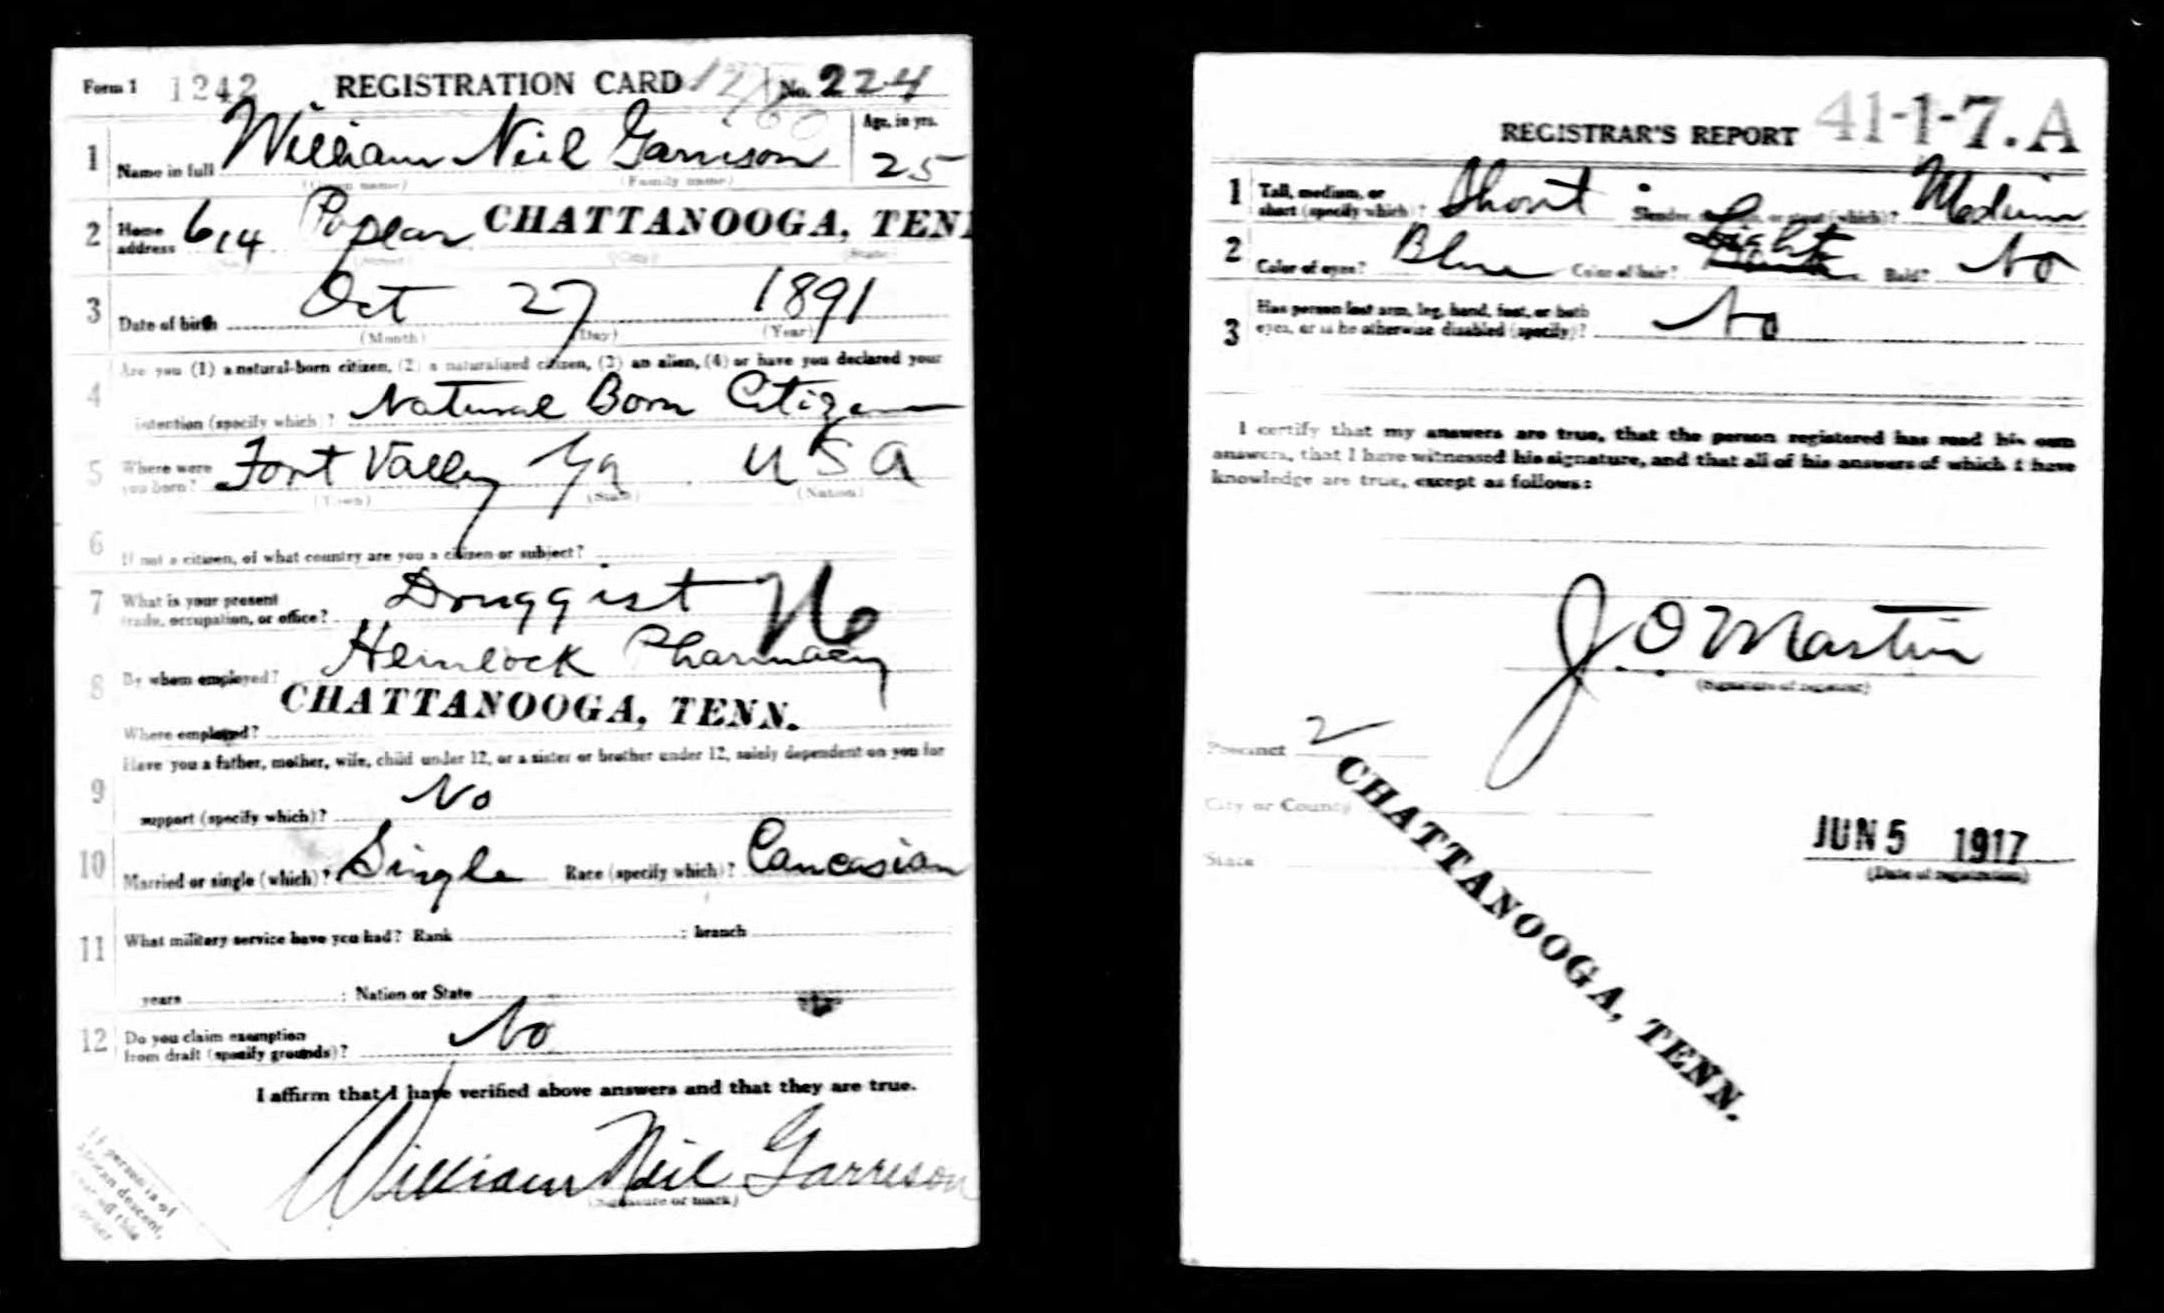 Form 1 1242 REGISTRATION CARD No. 224
1 Name in full William Neil Garrison Age, in yrs. 25
(Given name) (Family name)
2 Home address 614 Poplar CHATTANOOGA, TENN
(No.) (Street) (City) (State)
3 Date of birth Oct 27 1891
(Month) (Day) (Year)
4 Are you (1) a natural-born citizen, (2) a naturalized citizen, (3) an alien, (4) or have you declared your
intention (specify which)? Natural Born Citizen
5 Where were you born? Fort Valley Ga USA
(Town) (State) (Nation)
6 If not a citizen, of what country are you a citizen or subject?
7 What is your present trade, occupation, or office? Druggist No
8 By whom employed? Hemlock Pharmacy
CHATTANOOGA, TENN.
Where employed?
9 Have you a father, mother, wife, child under 12, or a sister or brother under 12, solely dependent on you for
support (specify which)? No
10 Married or single (which)? Single Race (specify which)? Caucasian
11 What military service have you had? Rank ; branch
years ; Nation or State
12 Do you claim exemption from draft (specify grounds)? No
I affirm that I have verified above answers and that they are true.
William Neil Garrison
(Signature or mark)
If person is of
African descent,
tear off this
corner
REGISTRAR'S REPORT 41-1-7.A
1 Tall, medium, or short (specify which)? Short Slender, medium, or stout (which)? Medium
2 Color of eyes? Blue Color of hair? Light Bald? No
3 Has person lost arm, leg, hand, foot, or both
eyes, or is he otherwise disabled (specify)? No
I certify that my answers are true, that the person registered has read his own
answers, that I have witnessed his signature, and that all of his answers of which I have
knowledge are true, except as follows:
J. O. Martin
(Signature of registrar)
Precinct 2
City or County
State
CHATTANOOGA, TENN.
JUN 5 1917
(Date of registration)